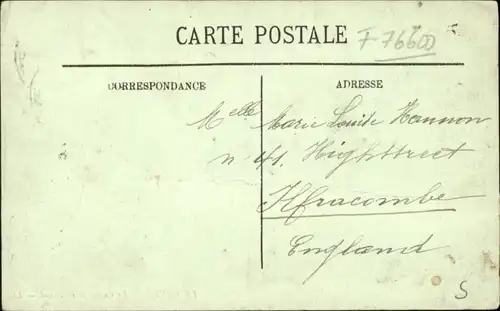 CARTE POSTALE
F 76600
CORRESPONDANCE
ADRESSE
Melle Marie Louise Hannon
n 41. Highstreet
Ilfracombe
England
S